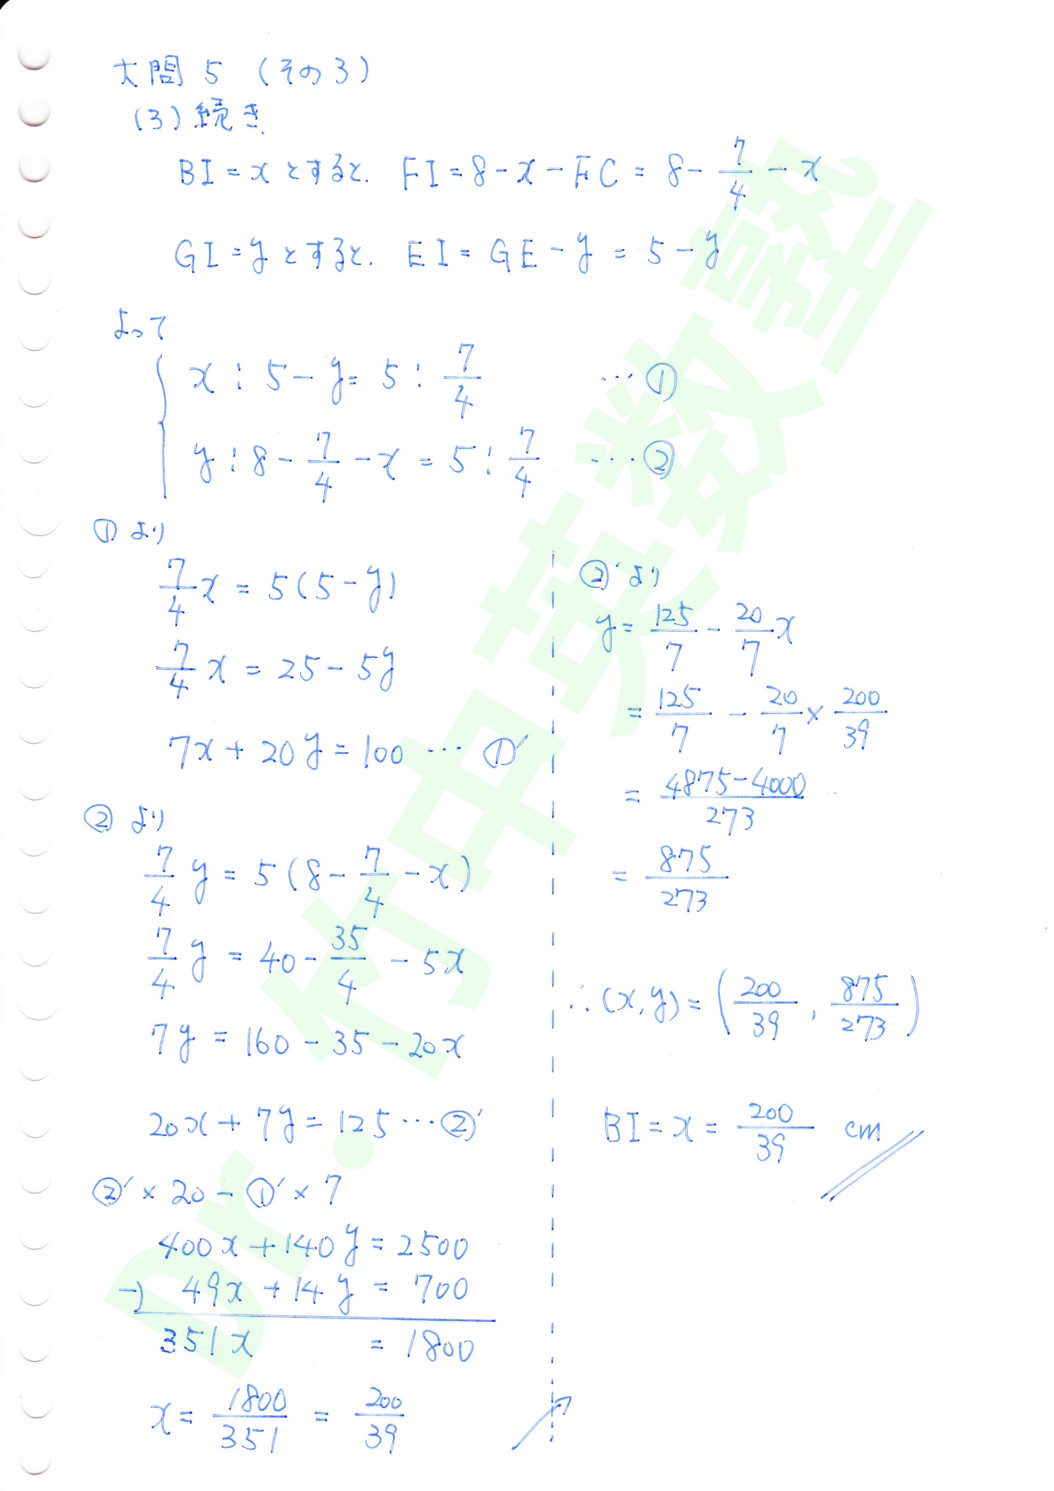 大問 5 (その3)
(3) 続き
BI = x とすると. FI = 8 - x - FC = 8 - 7/4 - x
GI = y とすると. EI = GE - y = 5 - y
よって
x : 5 - y = 5 : 7/4 … ①
y : 8 - 7/4 - x = 5 : 7/4 … ②
① より
7/4 x = 5(5 - y)
7/4 x = 25 - 5y
7x + 20y = 100 … ①'
② より
7/4 y = 5(8 - 7/4 - x)
7/4 y = 40 - 35/4 - 5x
7y = 160 - 35 - 20x
20x + 7y = 125 … ②'
②' × 20 - ①' × 7
400x + 140y = 2500
-) 49x + 14y = 700
351x = 1800
x = 1800/351 = 200/39
②' より
y = 125/7 - 20/7 x
= 125/7 - 20/7 × 200/39
= 4875-4000/273
= 875/273
∴ (x, y) = (200/39, 875/273)
BI = x = 200/39 cm
Dr. 竹中英数塾